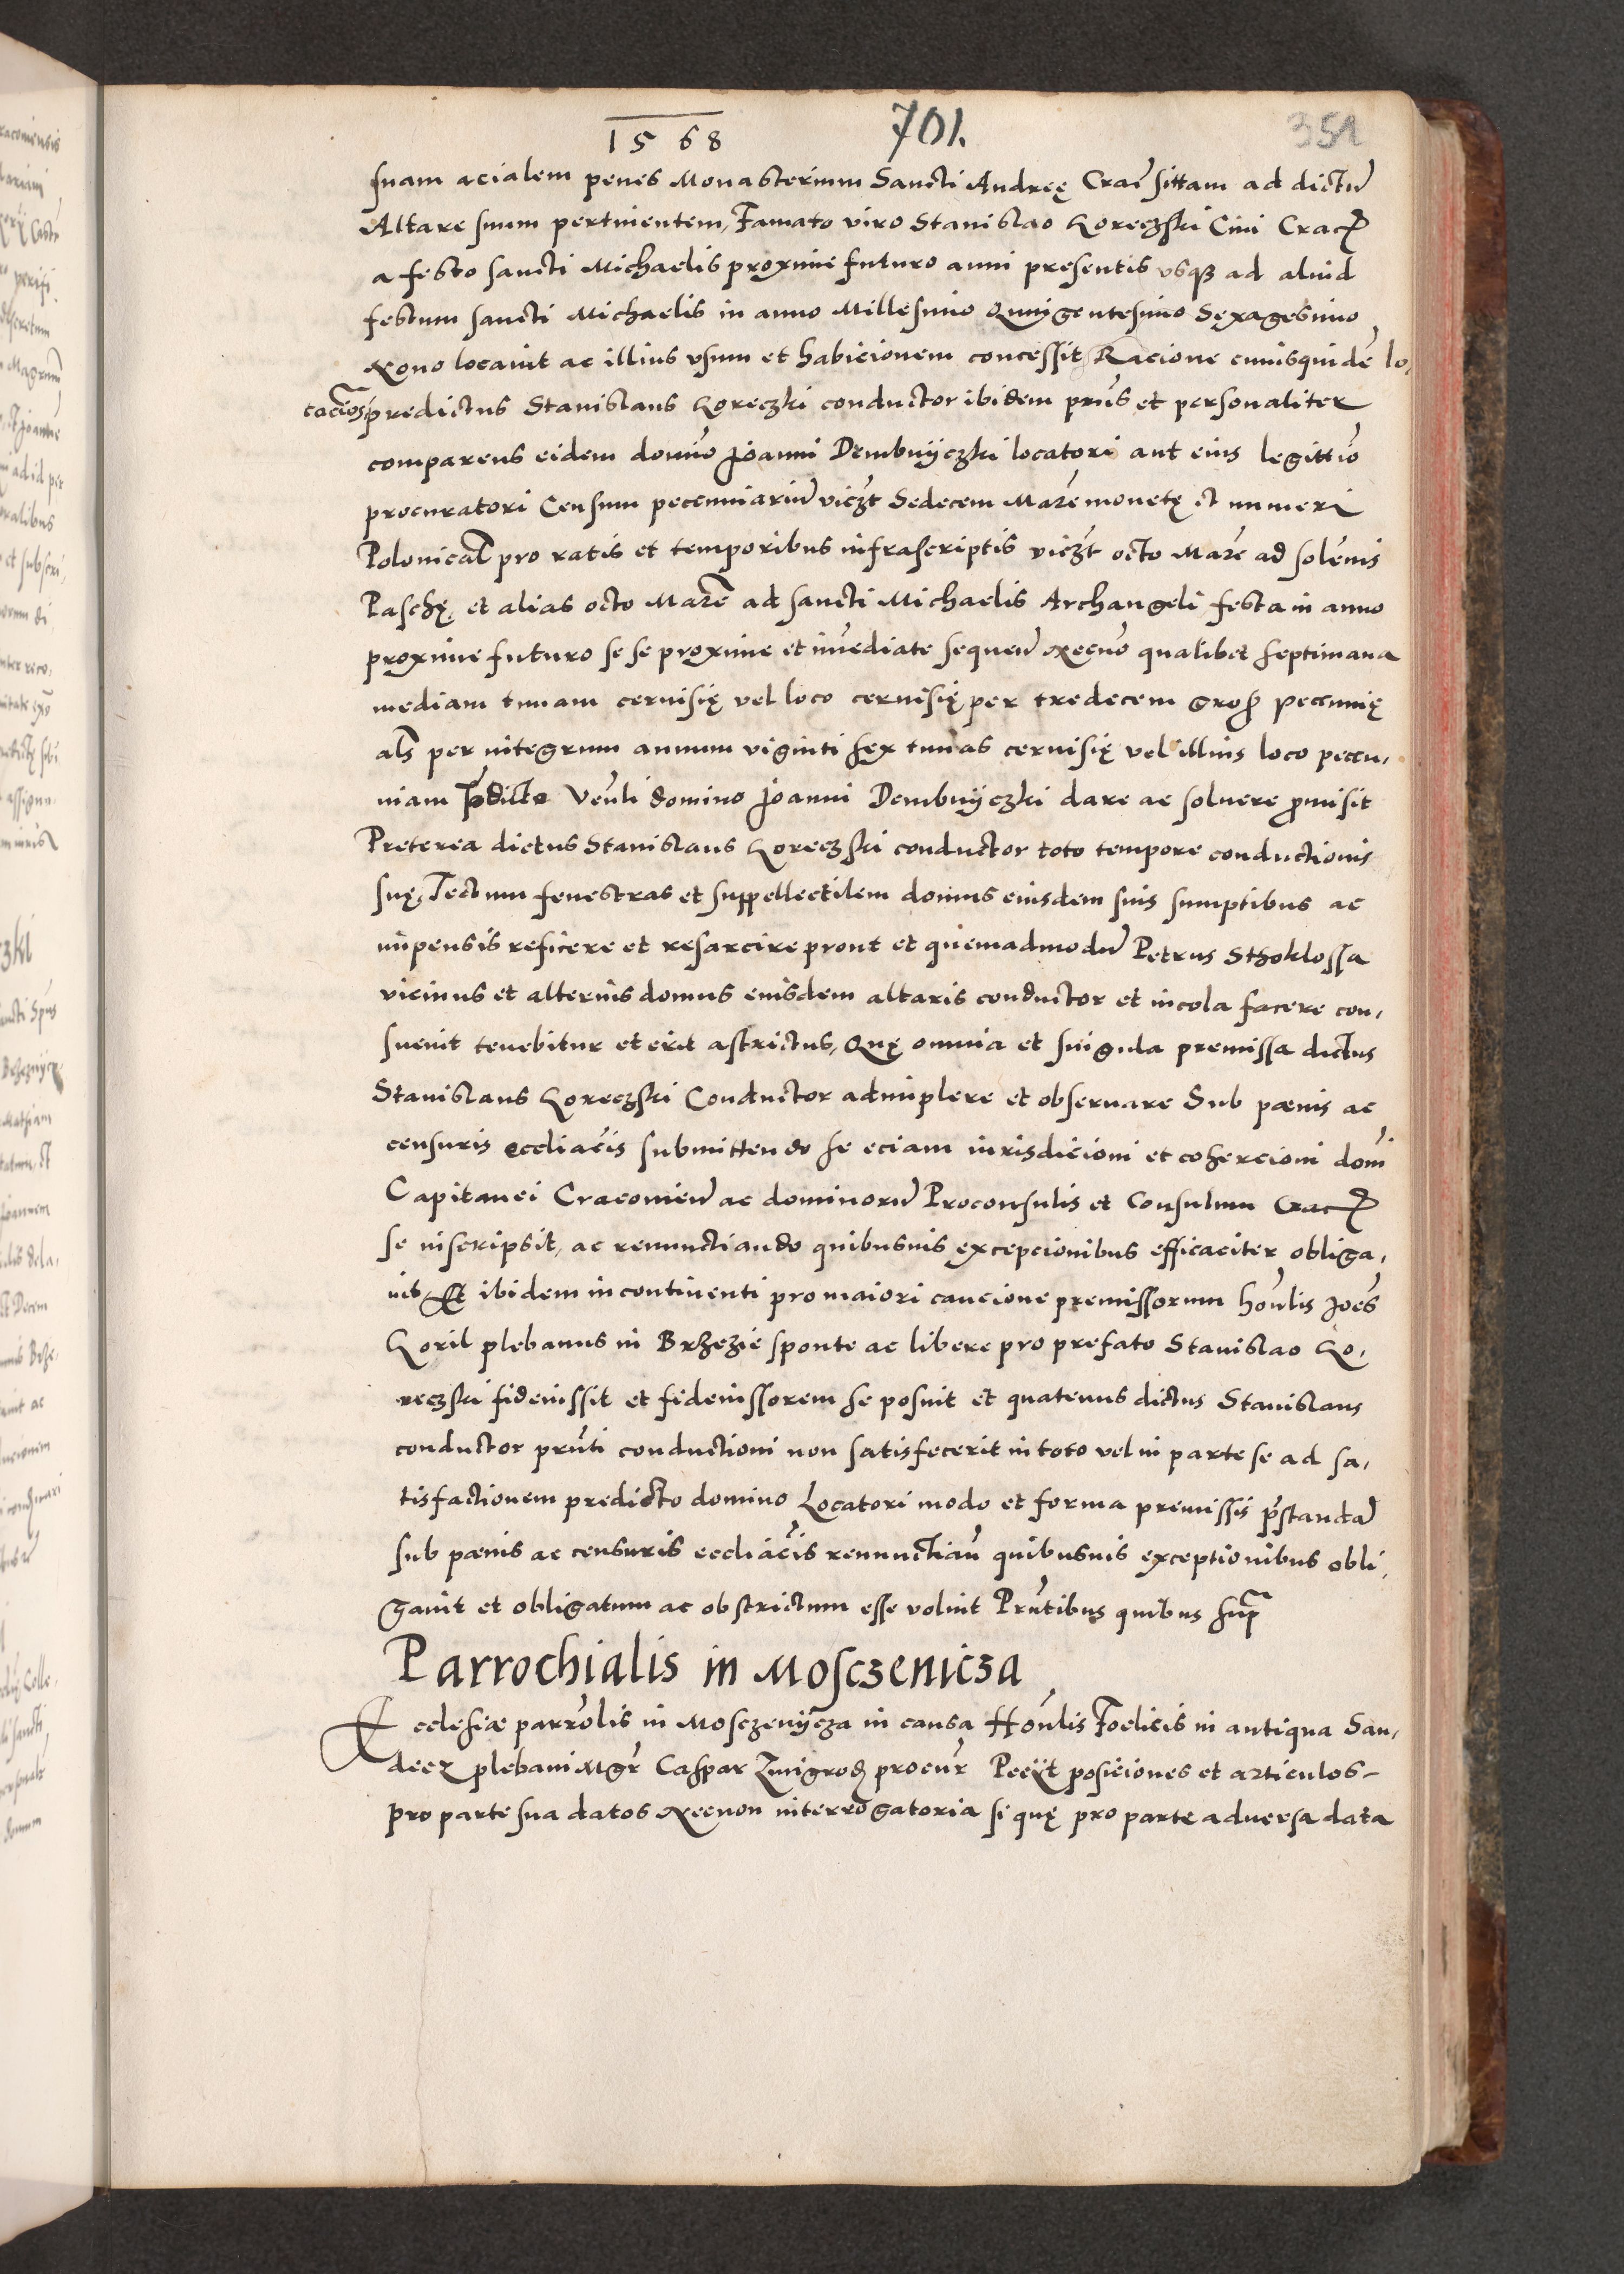 1568 701. 351
suam acialem penes Monasterium Sancti Andreę Crac̄ sittam ad dictū
Altare suum pertinentem, Famato viro Stanislao Koreczski Ciui Crac̄
a festo sancti Michaelis proxime futuro anni presentis vsq3 ad aliud
festum sancti Michaelis in anno Millesimo Quingentesimo Sexagesimo
Nono locauit ac illius vsum et habicionem concessit Racione cuiusquidē lo,
cacios̄ predictus Stanislaus Koreczki conductor ibidem prn̄s et personaliter
comparens eidem domīo Joanni Dembnyczki locatori aut eius legittīo
procuratori Censum peccuniariū vicz̄t Sedecem Marc̄ monetę et numeri
Polonical̄ pro ratis et temporibus infrascriptis vicz̄t octo Marc̄ ad solēnis
Paschę, et alias octo Marc̄ ad sancti Michaelis Archangeli festa in anno
proxime futuro se se proxime et im̄ediate sequeñ necnō qualibet septimana
mediam tunam ceruisię vel loco ceruisię per tredecem gros̄ peccunię
als̄ per integrum annum viginti sex tunas ceruisię vel illius loco peccu,
niam p̄dicto Veñli domino Joanni Dembnyczki dare ac soluere promisit
Preterea dictus Stanislaus Koreczski conductor toto tempore conductionis
suę, Tectum fenestras et suppellectilem domus eiusdem suis sumptibus ac
impensis reficere et resarcire prout et quemadmodū Petrus Sthoklossa
vicinus et alterius domus eiusdem altaris conductor et incola facere con,
sueuit tenebitur et erit astrictus, Quę omnia et singula premissa dictus
Stanislaus Koreczski Conductor adimplere et obseruare Sub pœnis ac
censuris eccliac̄is submittendo se eciam iurisdicioni et cohercioni dom̄i
Capitanei Cracovieñ ac dominorū Proconsulis et Consulum Crac̄
se inscripsit, ac renunctiando quibusuis excepcionibus efficaciter obliga,
uit Et ibidem incontinenti pro maiori caucione premissorum hon̄lis Joēs
Koril plebanus in Brzezie sponte ac libere pro prefato Stanislao Ko,
reczski fideiussit et fideiussorem se posuit et quatenus dictus Stanislaus
conductor prn̄ti conductioni non satisfecerit in toto vel in parte se ad sa,
tisfactionem predicto domino Locatori modo et forma premissis pr̄standā
sub pœnis ac censuris eccliac̄is renunctiañ quibusuis exceptionibus obli,
gauit et obligatum ac obstrictum esse voluit Prn̄tibus quibus supra
Parrochialis in Mosczenicza
Ecclesiæ parrōlis in Mosczenycza in causa Hon̄lis Foelicis in antiqua San,
decz plebani Mgr̄ Caspar Zmigrod̄ procur̄ Pecyt posiciones et articulos
pro parte sua datos Necnon interrogatoria si quę pro parte aduersa data